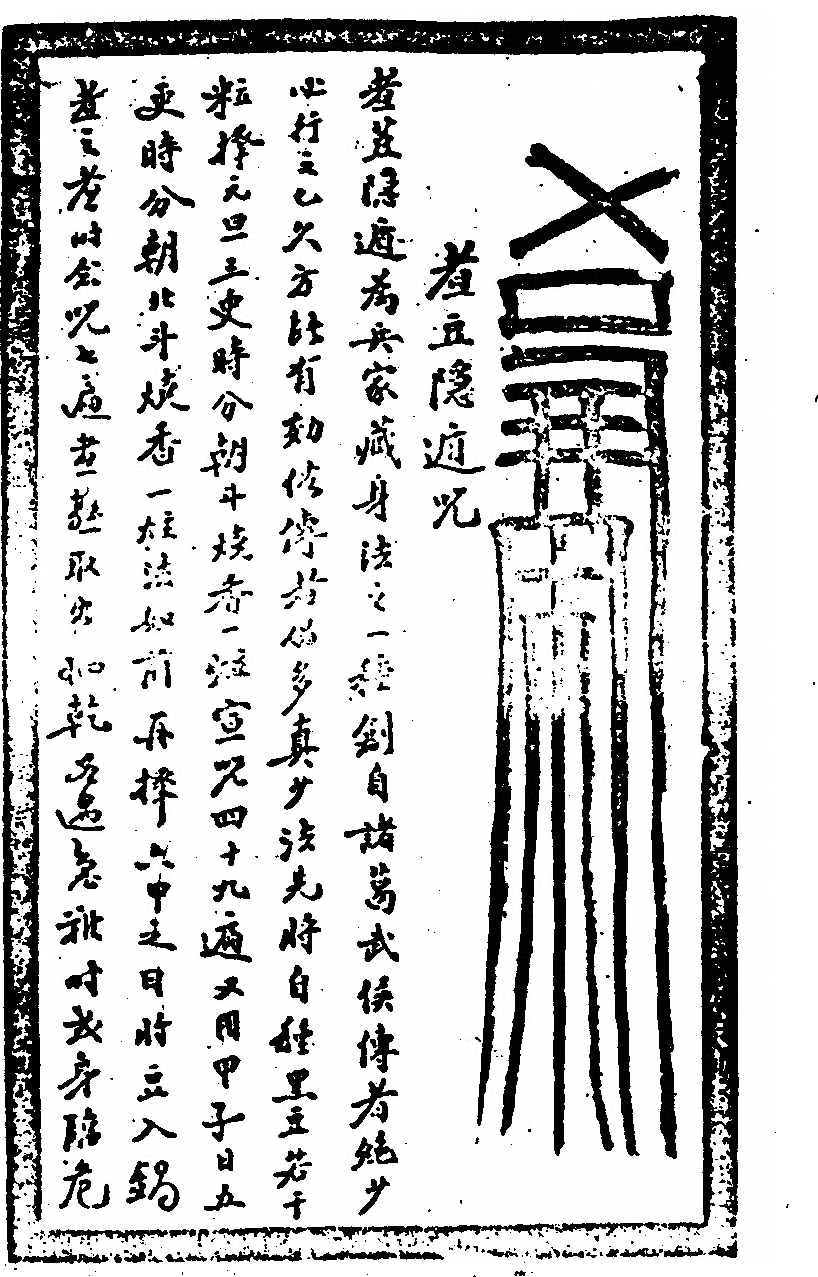 煮豆隠遁呪
煮荳隠遁為兵家藏身法之一種創自諸葛武侯傳者絶少
必行之已久方能有効俗傳者偽多真少法先時自種黒豆若干
粒擇元旦三更時分朝斗焼香一炷宣咒四十九遍又用甲子日五
更時分朝北斗焼香一炷法如前再擇六甲之日時豆入鍋
煮之煮时念咒七遍煮熟取出晒乾若遇急難时或身臨危